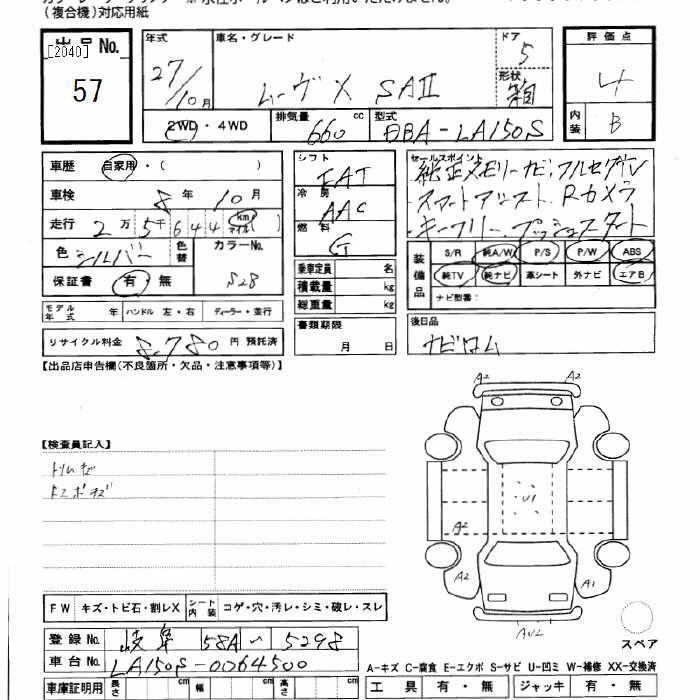 (複合機)対応用紙
出品No.
[2040]
57
年式
27/10月
車名・グレード
ムーヴX SAⅡ
ドア
5
形状
箱
評価点
4
内装
B
2WD・4WD
排気量
660 cc
型式
DBA-LA150S
車歴 自家用・( )
車検 8年 10月
走行 2万5千644 km マイル( )
色 シルバー 色替 カラーNo. S28
保証書 有・無
モデル年式 年 ハンドル 左・右 ディーラー・並行
リサイクル料金 8,780 円 預託済
シフト
FAT
冷房
AAC
燃料
G
乗車定員 名
積載量 kg
総重量 kg
書類期限
月 日
セールスポイント
純正メモリーナビ、フルセグTV
スマートアシスト、Rカメラ
キーフリー、プッシュスタート
装備品
S/R 純A/W P/S P/W ABS
純TV 純ナビ 革シート 外ナビ エアB
ナビ型番:
後日品
ナビロム
【出品店申告欄(不良箇所・欠品・注意事項等)】
【検査員記入】
トリムキズ
A2 A2
U1
A2
A2 A1
AU2
スペア
FW キズ・トビ石・割レX シート内装 コゲ・穴・汚レ・シミ・破レ・スレ
登録No. 岐阜 58A い 5298
車台No. LA150S-0064500
車庫証明用 長さ cm 幅 cm 高さ cm
A-キズ C-腐食 E-エクボ S-サビ U-凹ミ W-補修 XX-交換済
工具 有・無 ジャッキ 有・無